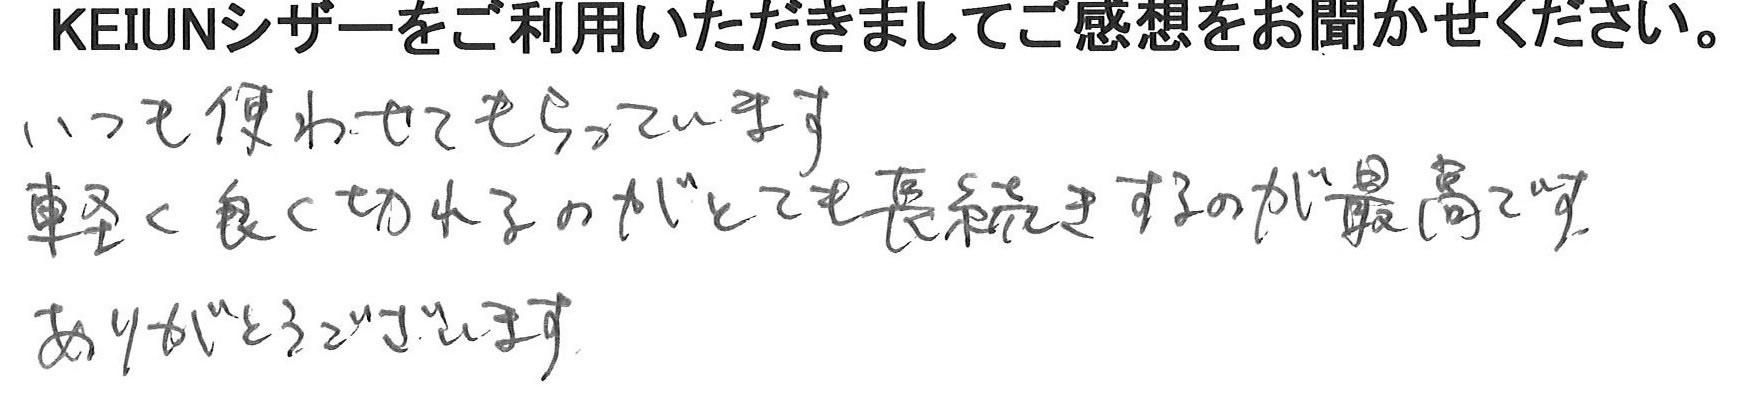 KEIUNシザーをご利用いただきましてご感想をお聞かせください。
いつも使わせてもらっています
軽く良く切れるのがとても長続きするのが最高です
ありがとうございます